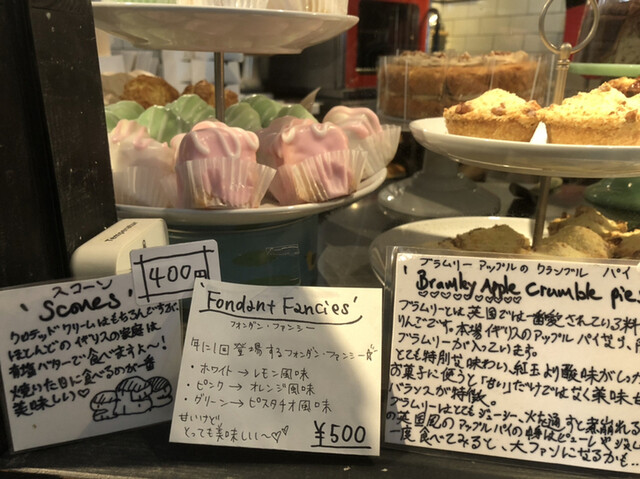 Temperatur
スコーン
Scones
クロテッドクリームはもちろんですが、
ほとんどの イギリスの家庭は
有塩バターで食べますよ〜!
焼いた日に食べるのが一番
美味しい♡
400円
'Fondant Fancies'
フォンダン・ファンシー
年に1回 登場するフォンダン・ファンシー☆
・ホワイト→レモン風味
・ピンク → オレンジ風味
・グリーン→ピスタチオ風味
甘いけど
とっても美味しい〜♡♡
¥500
ブラムリー アップル の クランブル パイ
'Bramley Apple Crumble pie
ブラムリーとは 英国では一番愛されている料
りんごです。本場イギリスのアップルパイは
ブラムリーが入っています。
とても特別な味わい、紅玉より酸味がしっか
お菓子に使うと「甘い」だけではなく美味
バランスが特徴。
ブラムリーはとてもジューシー、火を通すと煮崩れる
の英国風のアップルパイの中身はピューレやジャム
一度 食べてみると、大ファンになるかも...